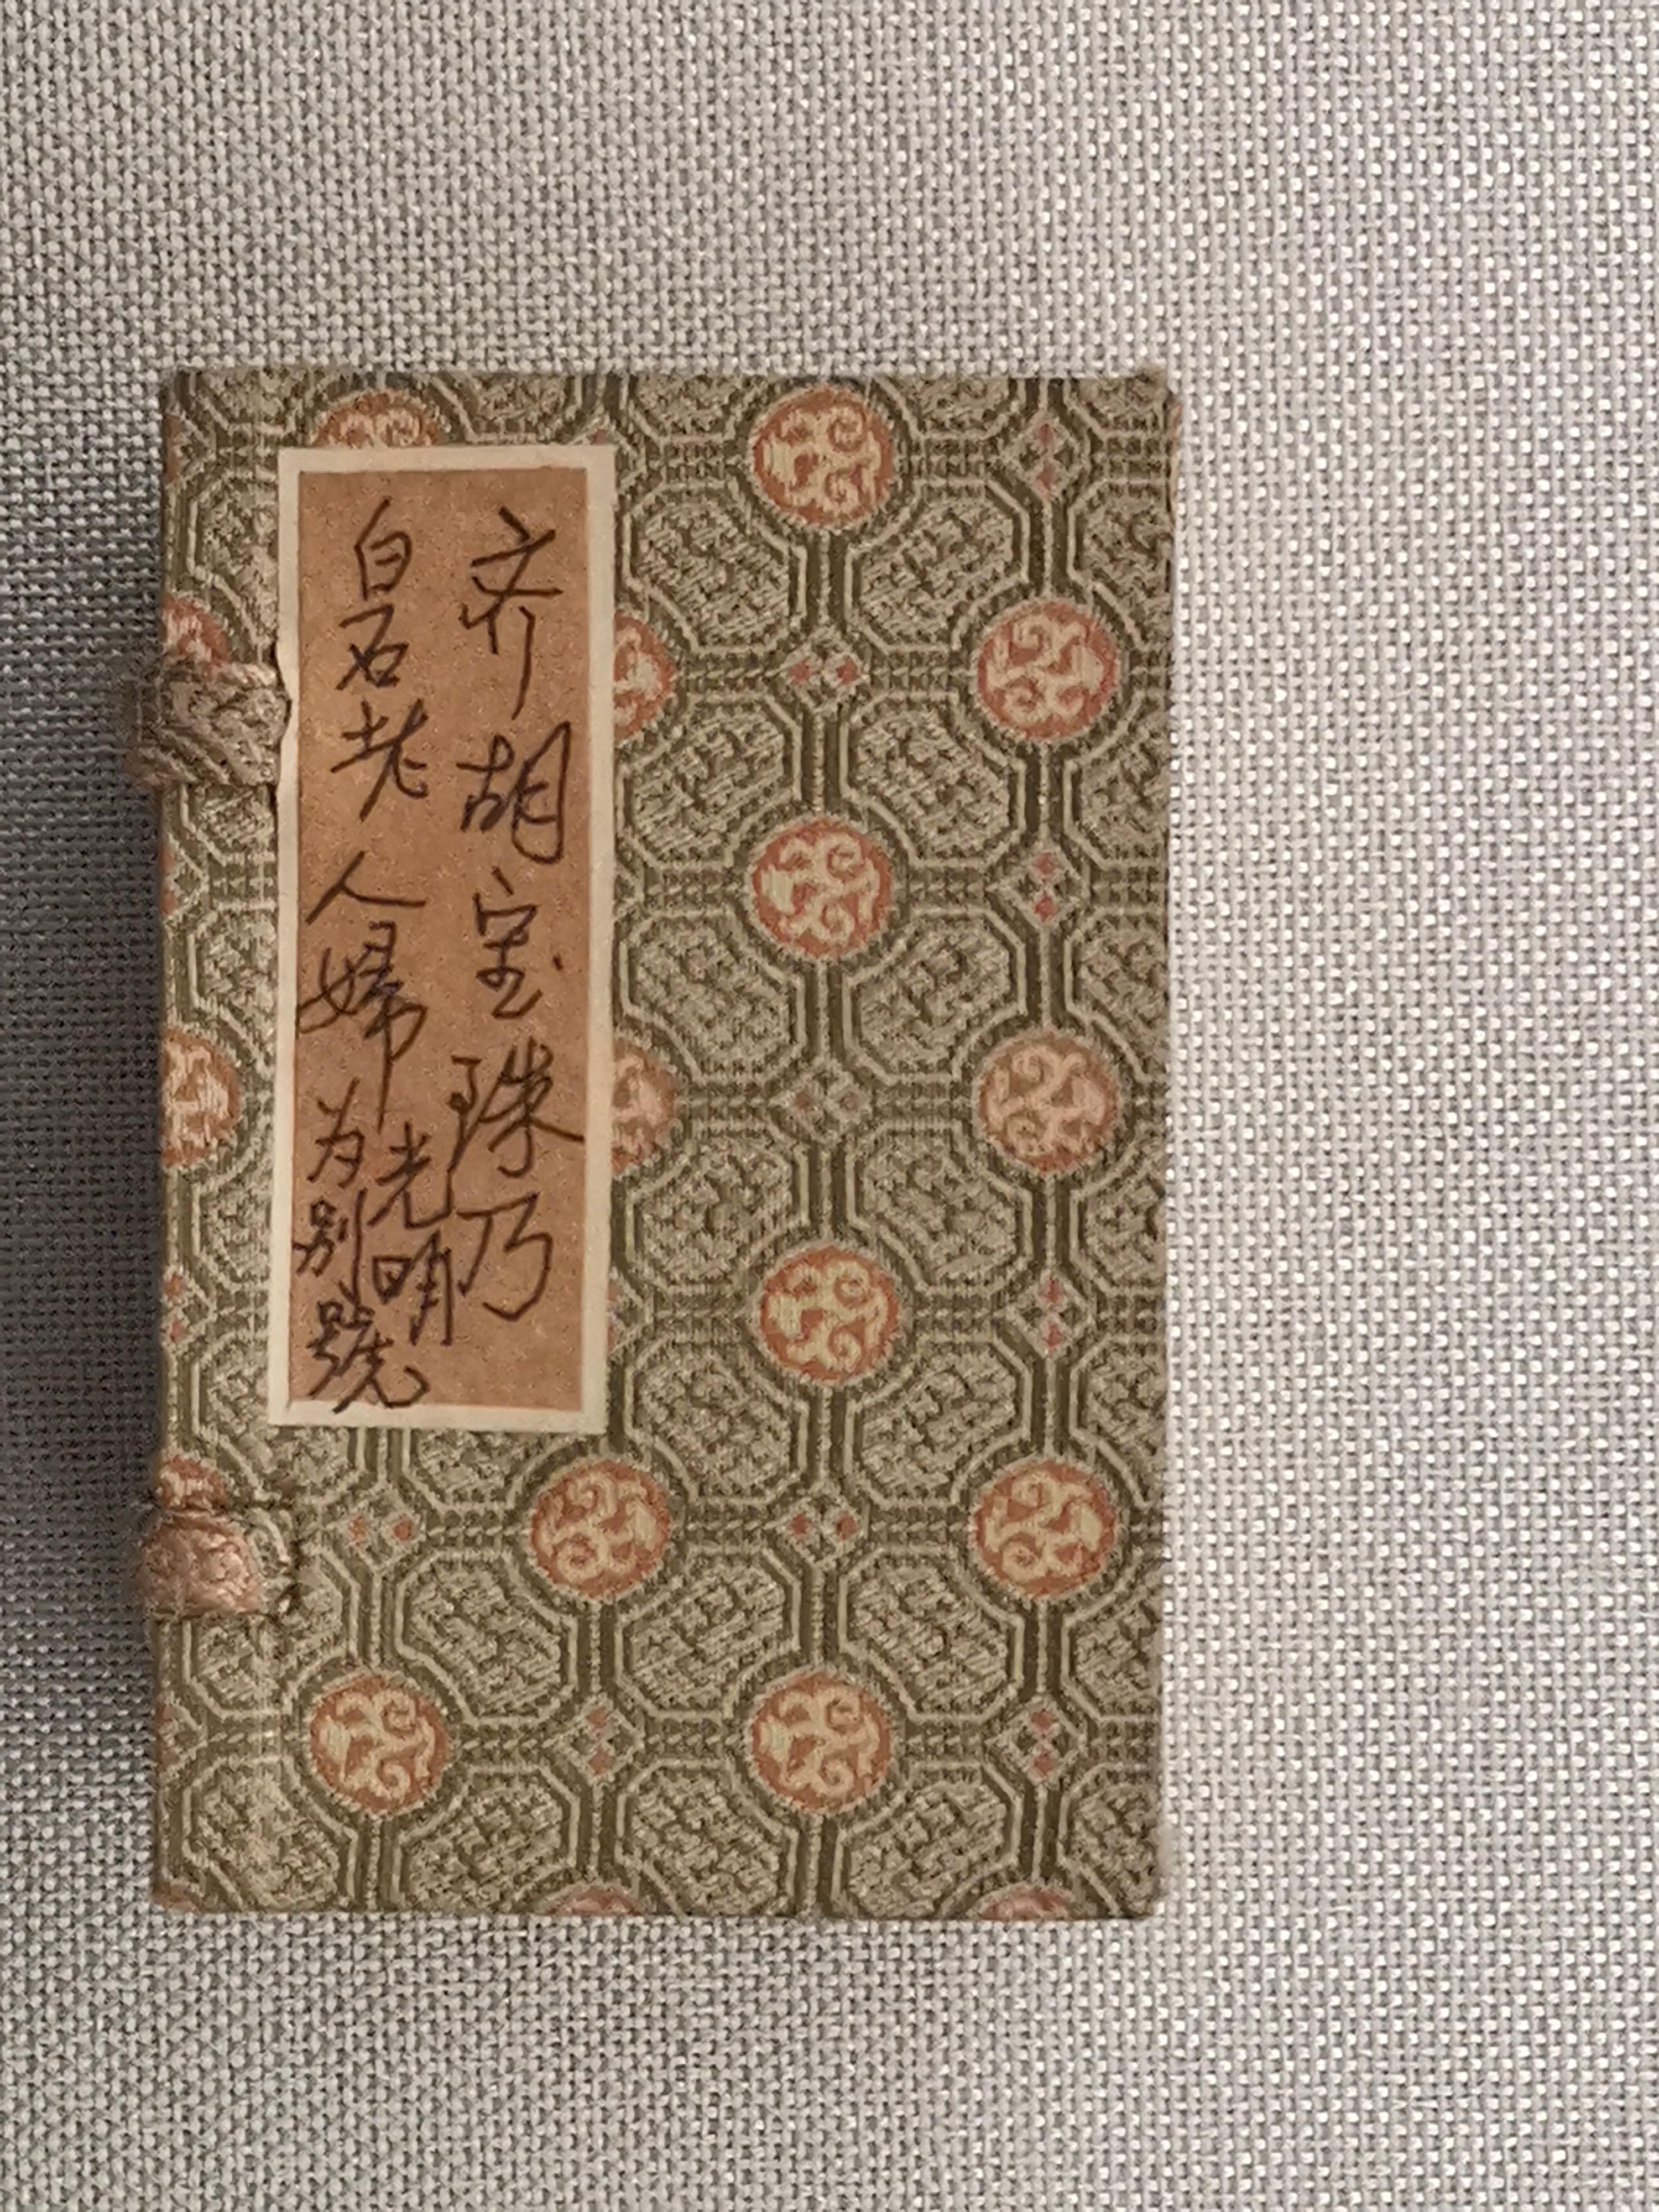 齐胡宝珠乃
白石老人婦光明
为别號